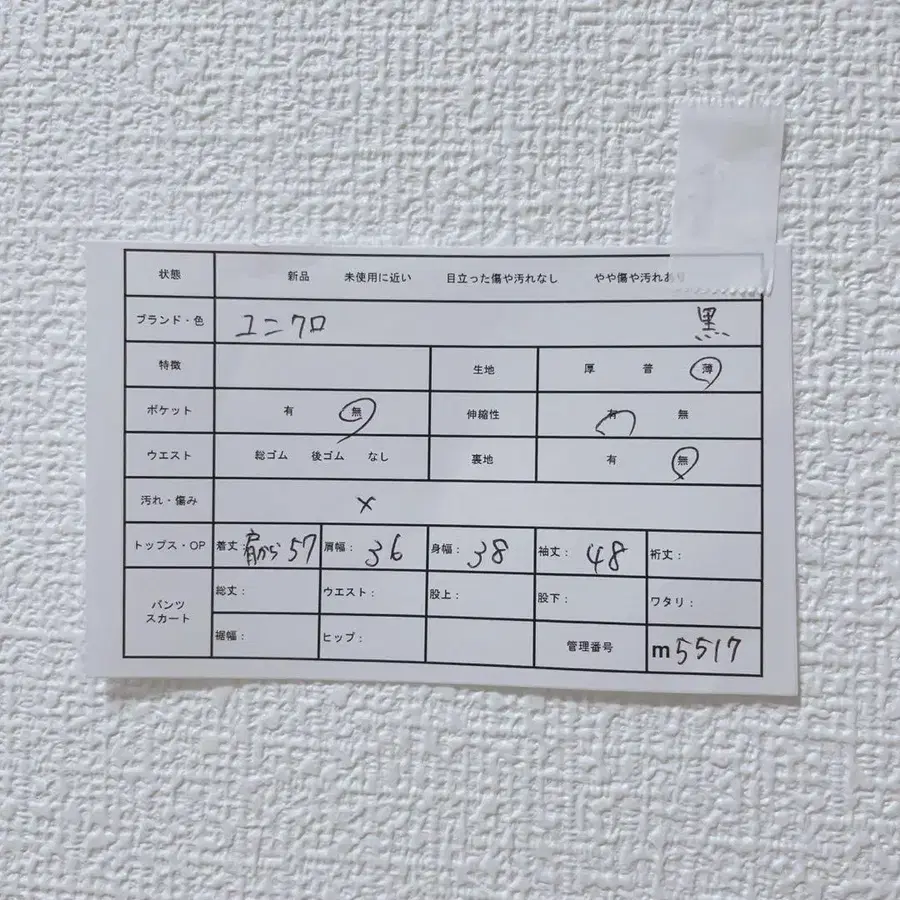 状態 新品 未使用に近い 目立った傷や汚れなし やや傷や汚れあり
ブランド・色 ユニクロ 黒
特徴 生地 厚 普 薄
ポケット 有 無 伸縮性 有 無
ウエスト 総ゴム 後ゴム なし 裏地 有 無
汚れ・傷み ×
トップス・OP 着丈: 肩から57 肩幅: 36 身幅: 38 袖丈: 48 裄丈:
パンツ
スカート
総丈: ウエスト: 股上: 股下: ワタリ:
裾幅: ヒップ: 管理番号 m5517